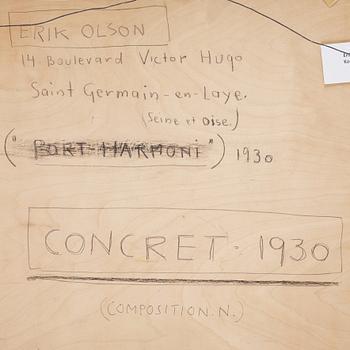 ERIK OLSON
14 Boulevard Victor Hugo
Saint Germain-en-Laye.
(Seine et Oise.)
("PORT-HARMONI") 1930
CONCRET · 1930
(COMPOSITION. N.)